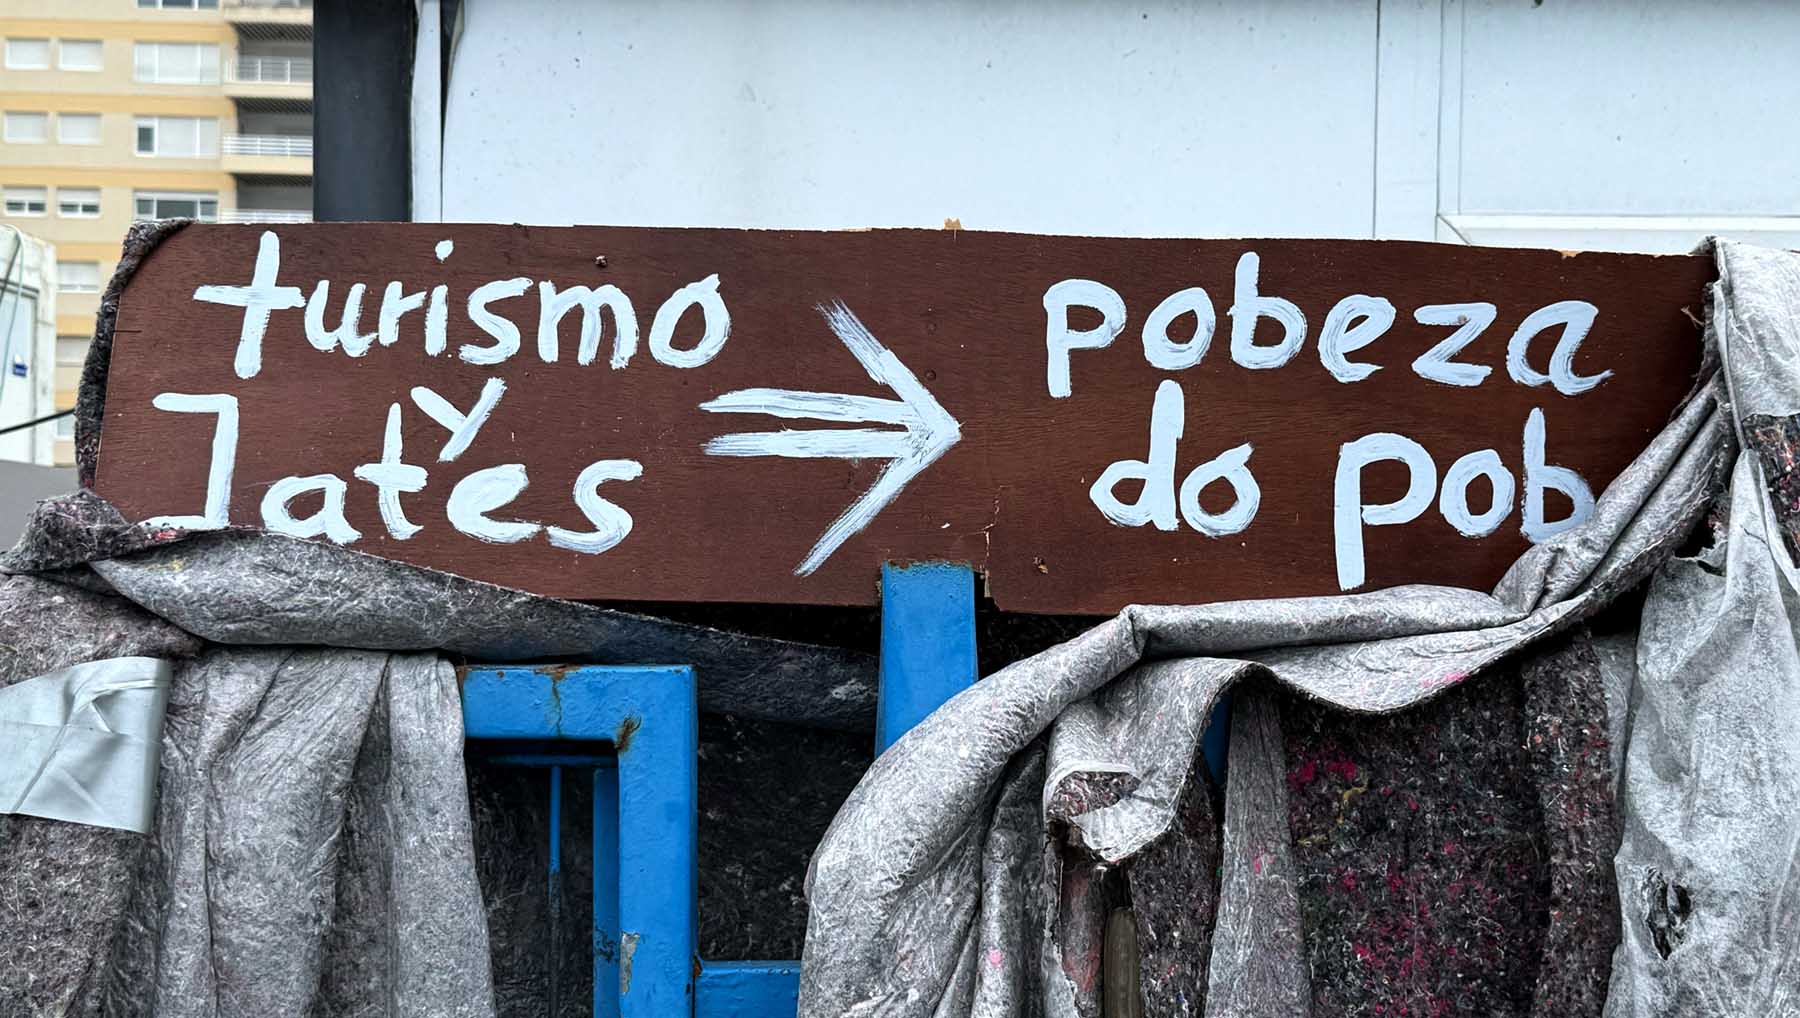 turismo
y
Jates
⇒
pobeza
do pob